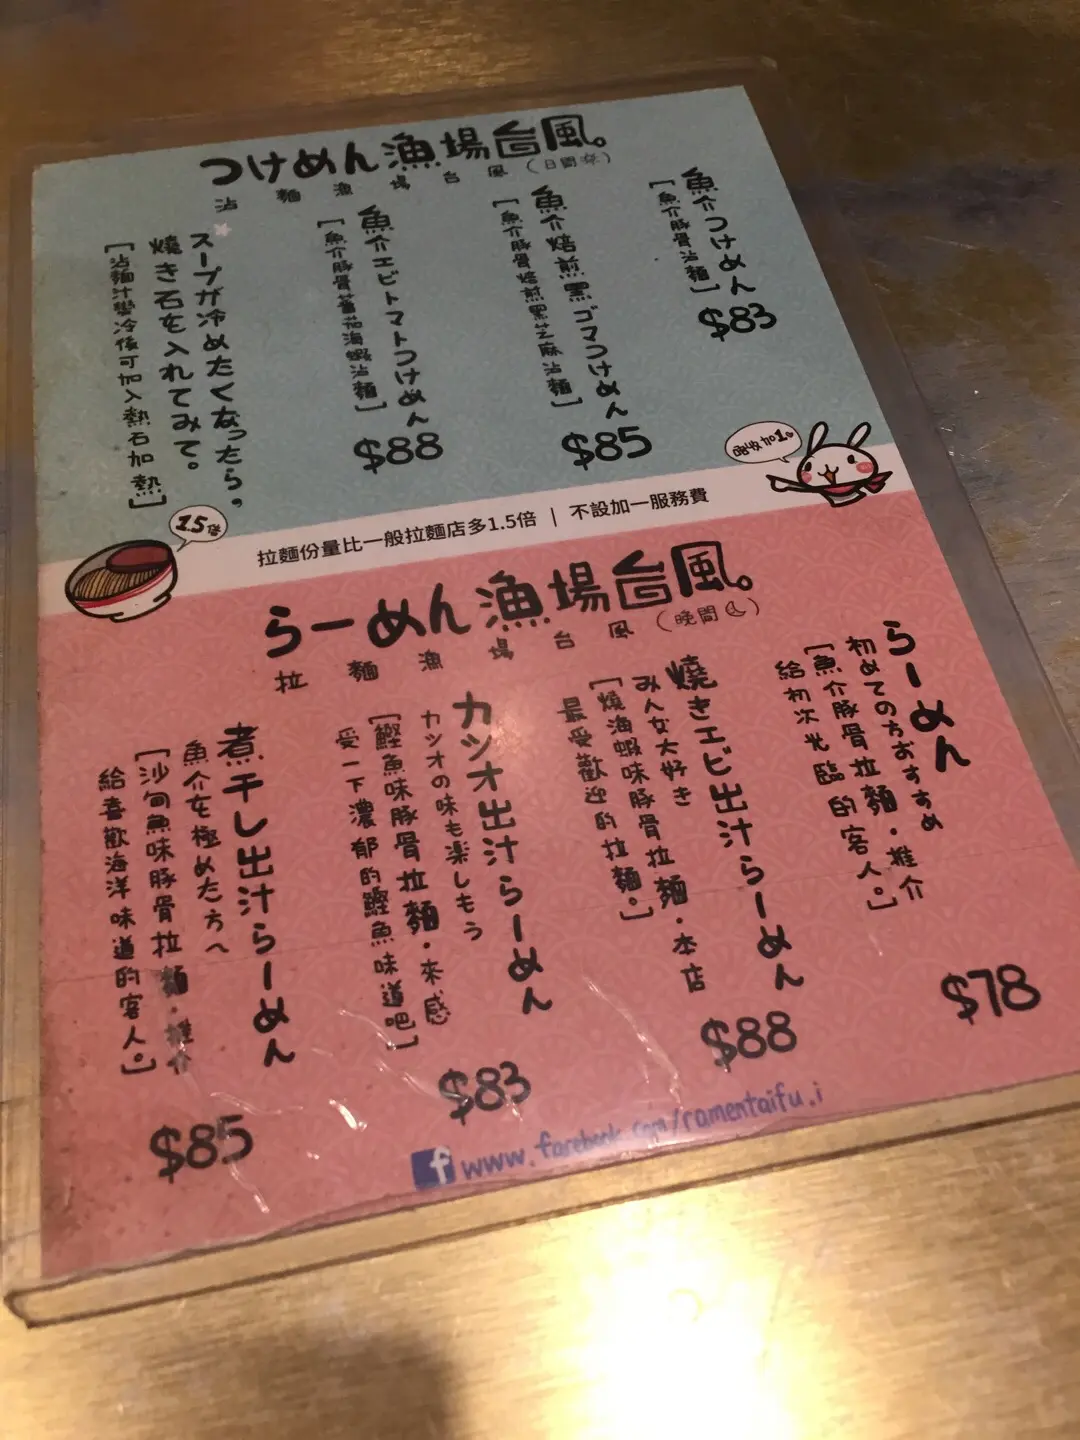 つけめん漁場台風。
沾麵漁場台風（日間）
魚介つけめん
[魚介豚骨沾麵]
$83
魚介焙煎黒ゴマつけめん
[魚介豚骨焙煎黑芝麻沾麵]
$85
魚介エビトマトつけめん
[魚介豚骨蕃茄海蝦沾麵]
$88
スープが冷めたくなったら。
焼き石を入れてみて。
[沾麵汁變冷後可加入熱石加熱]
1.5倍
拉麵份量比一般拉麵店多1.5倍 | 不設加一服務費
らーめん漁場台風。
拉麵漁場台風（晚間）
らーめん
初めての方おすすめ
[魚介豚骨拉麵・推介
給初次光臨的客人。]
$78
焼きエビ出汁らーめん
みんな大好き
[燒海蝦味豚骨拉麵・本店
最受歡迎的拉麵。]
$88
カツオ出汁らーめん
カツオの味も楽しもう
[鰹魚味豚骨拉麵・來感
受一下濃郁的鰹魚味道吧]
$83
煮干し出汁らーめん
魚介を極めた方へ
[沙甸魚味豚骨拉麵・推介
給喜歡海洋味道的客人。]
$85
f www.facebook.com/ramentaifu.i